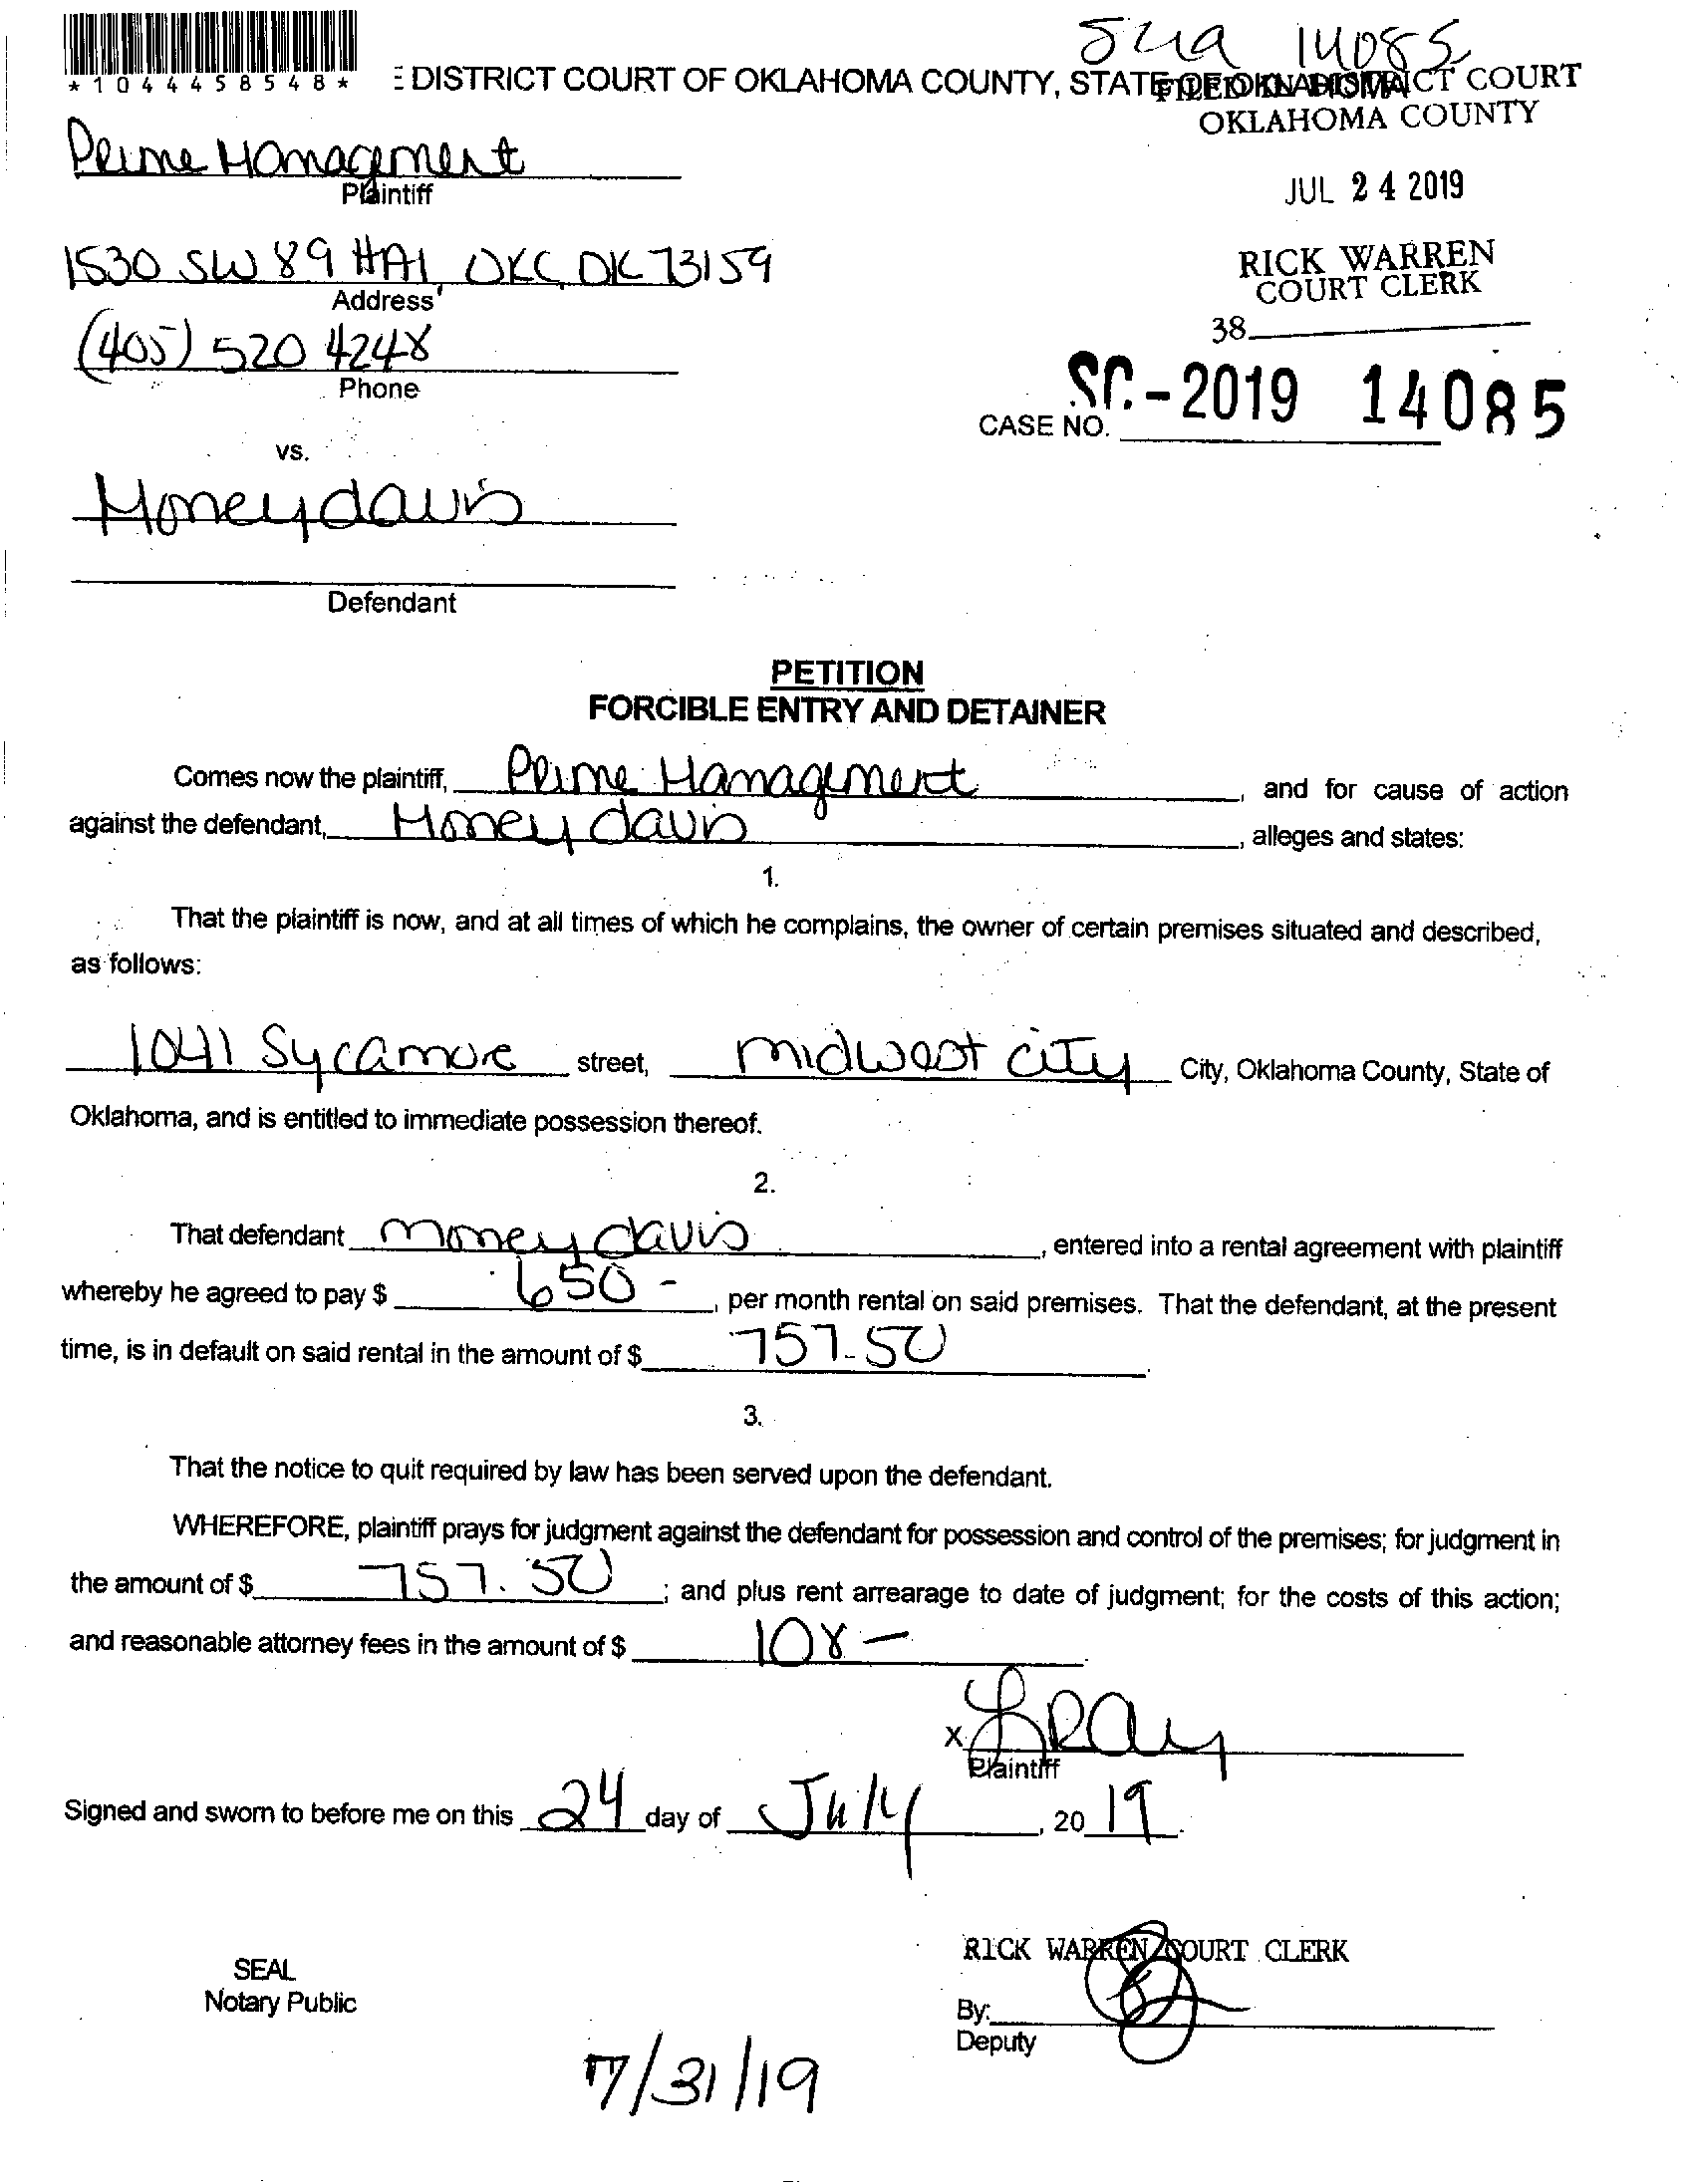 14085
*1044458548*
DISTRICT COURT OF OKLAHOMA COUNTY, STATE OF OKLAHOMA
FILED IN DISTRICT COURT
OKLAHOMA COUNTY
Prime Management
Plaintiff
JUL 24 2019
1530 SW 89 #A1 OKC, OK 73159
Address
RICK WARREN
COURT CLERK
(405) 520 4248
Phone
38
SC-2019 14085
CASE NO.
vs.
Money davis
Defendant
PETITION
FORCIBLE ENTRY AND DETAINER
Comes now the plaintiff, Prime Management, and for cause of action
against the defendant, Money davis, alleges and states:
1.
That the plaintiff is now, and at all times of which he complains, the owner of certain premises situated and described,
as follows:
1041 Sycamore street, midwest city City, Oklahoma County, State of
Oklahoma, and is entitled to immediate possession thereof.
2.
That defendant money davis, entered into a rental agreement with plaintiff
whereby he agreed to pay $ 650-, per month rental on said premises. That the defendant, at the present
time, is in default on said rental in the amount of $ 757.50.
3.
That the notice to quit required by law has been served upon the defendant.
WHEREFORE, plaintiff prays for judgment against the defendant for possession and control of the premises; for judgment in
the amount of $ 757.50; and plus rent arrearage to date of judgment; for the costs of this action;
and reasonable attorney fees in the amount of $ 108-.
X LRay
Plaintiff
Signed and sworn to before me on this 24 day of July, 2019.
RICK WARREN COURT CLERK
SEAL
Notary Public
By:
Deputy
7/31/19